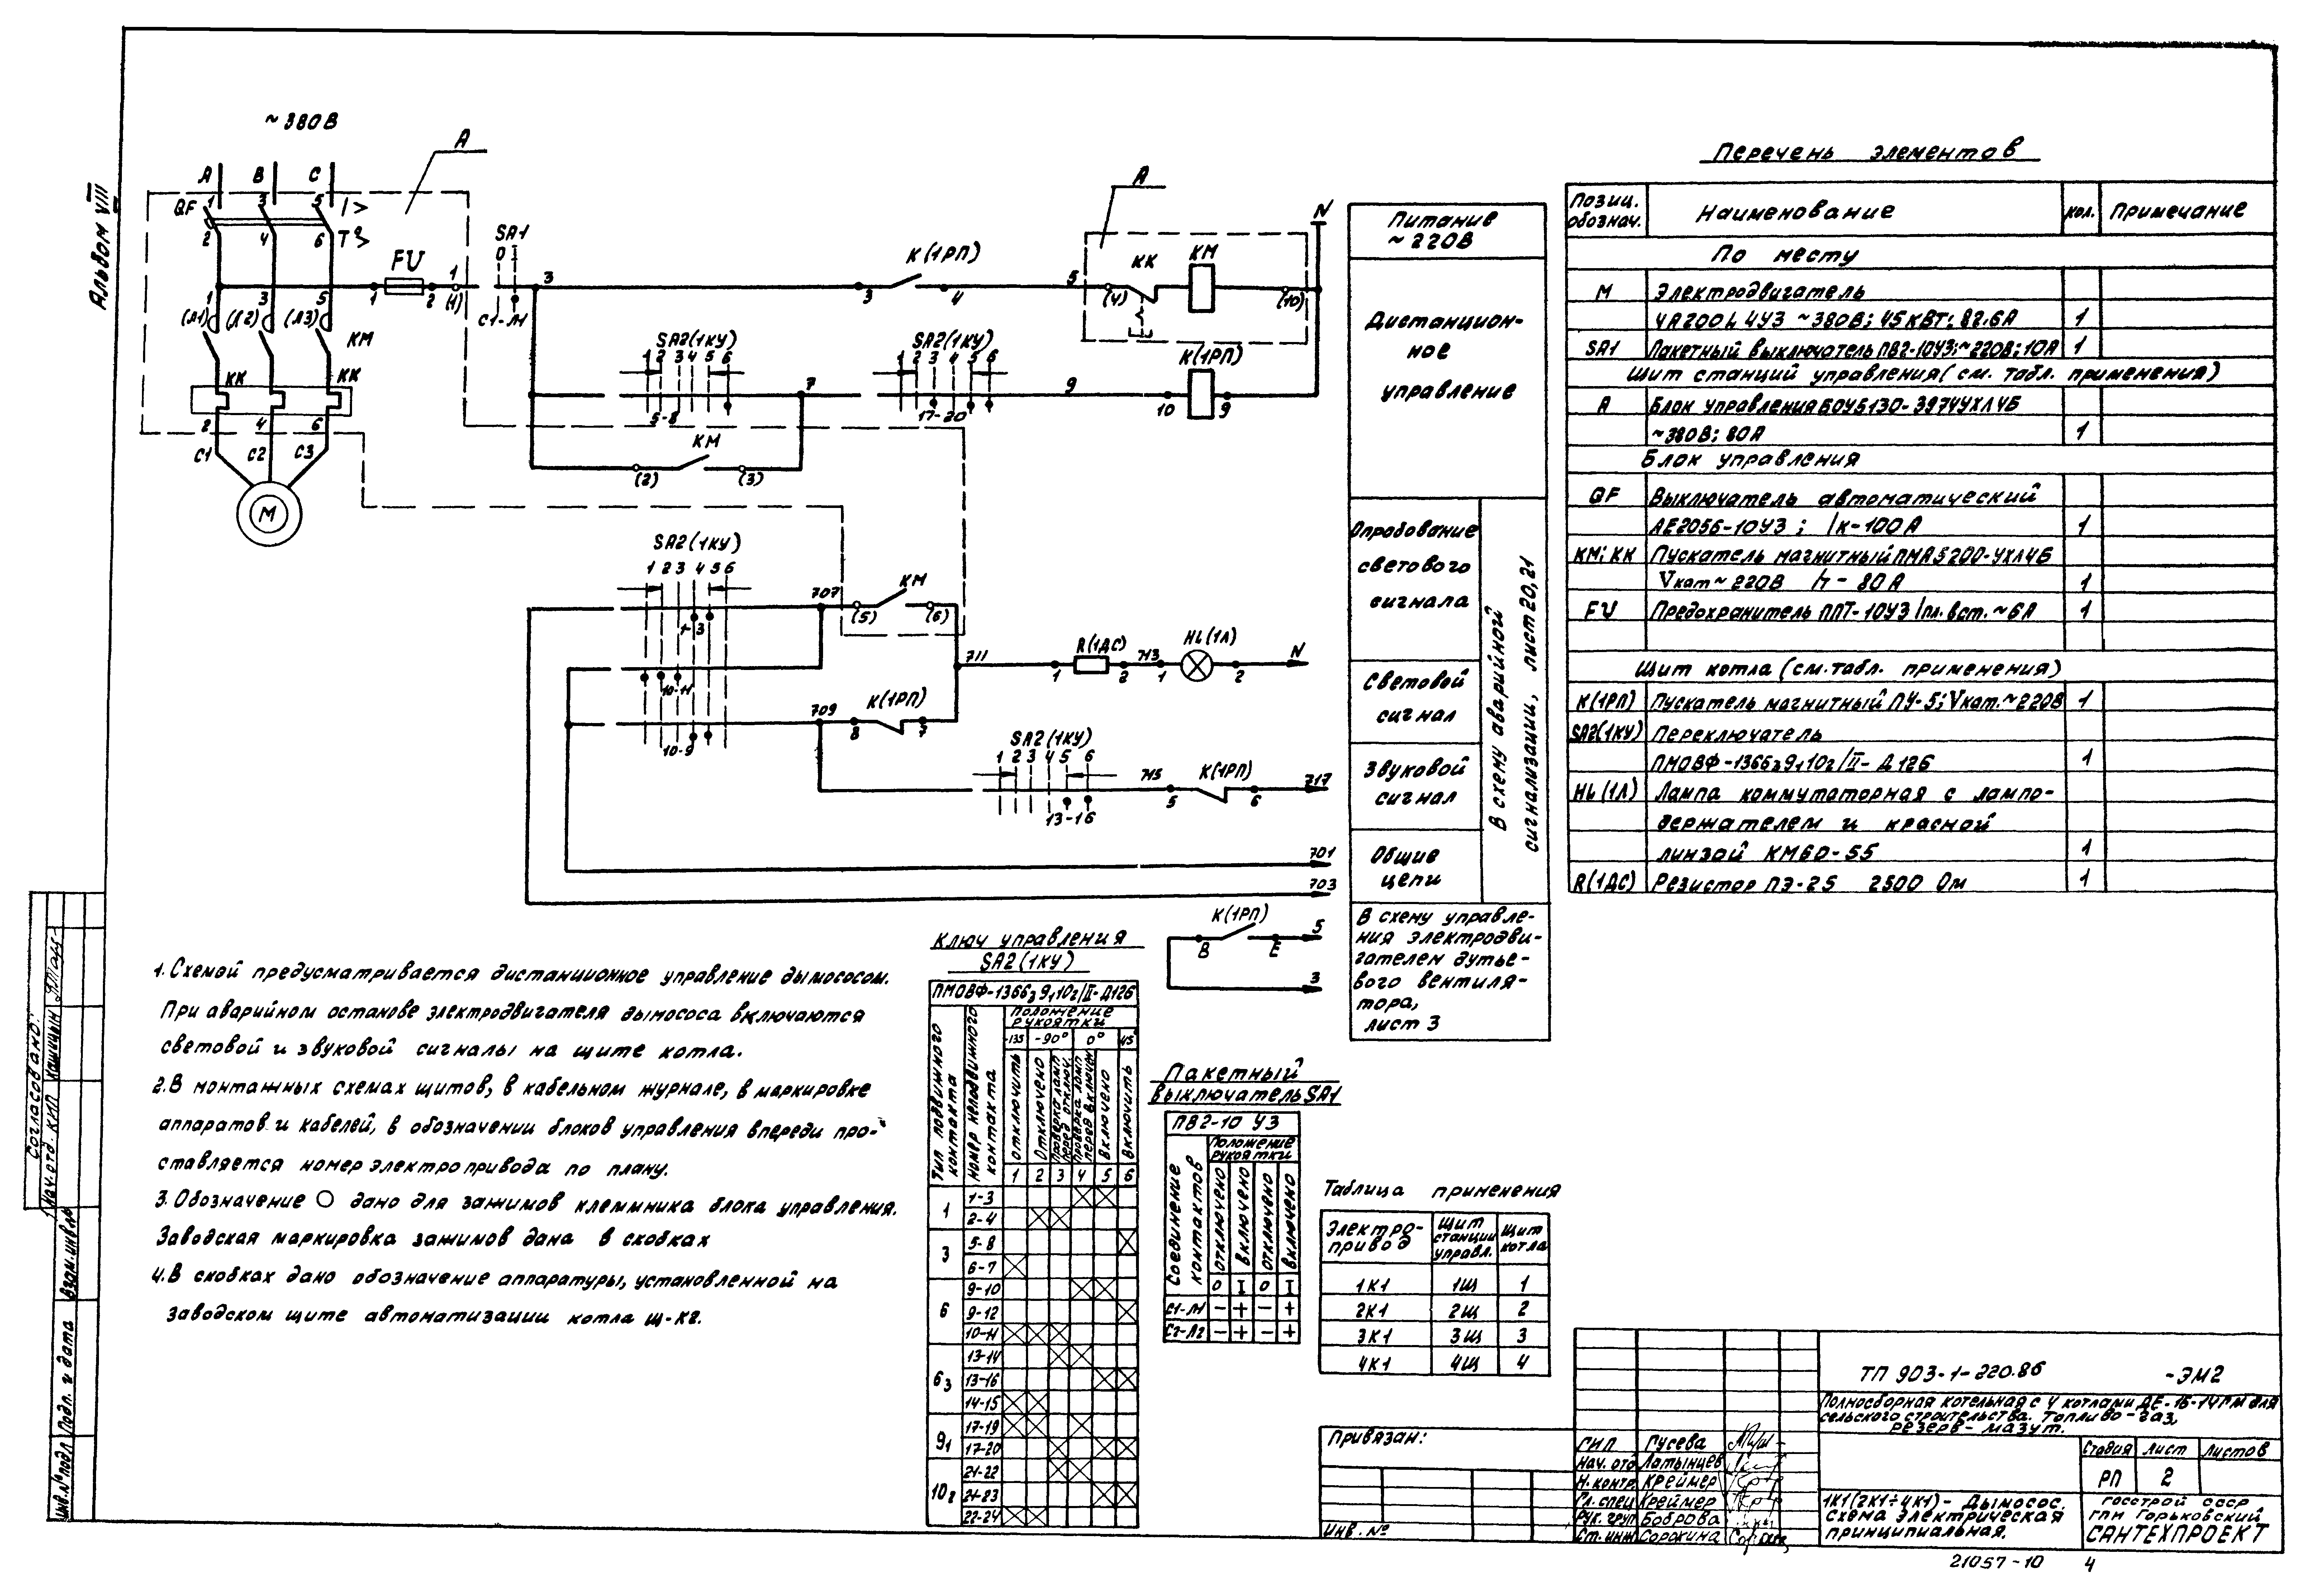 Альбом VIII
~380В
А
А В С
QF
1 3 5
I>
2 4 6
Т
FU
1 2
1
(1)
SA1
0 I
С1-Л1
3
К(1РП)
3 4
5
А
(4)
КК
КМ
(10)
N
1 3 5
(Л1) (Л2) (Л3)
КМ
КК КК
2 4 6
С1 С2 С3
М
SA2(1КУ)
1 2 3 4 5 6
5-8
7
SA2(1КУ)
1 2 3 4 5 6
17-20
9
К(1РП)
10 9
КМ
(2) (3)
SA2(1КУ)
1 2 3 4 5 6
1-3
707
КМ
(5) (6)
10-11
711
R(1ДС)
1 2
713
HL(1Л)
1 2
N
10-9
709
К(1РП)
8 7
SA2(1КУ)
1 2 3 4 5 6
13-16
715
К(1РП)
5 6
717
701
703
К(1РП)
В Е
5
3
Питание
~220В
Дистанцион-
ное
управление
Опробование
светового
сигнала
Световой
сигнал
Звуковой
сигнал
Общие
цепи
В схему аварийной
сигнализации, лист 20,21
В схему управле-
ния электродви-
гателем дутье-
вого вентиля-
тора,
лист 3
Перечень элементов
Позиц. обознач.
Наименование
кол.
Примечание
По месту
М Электродвигатель
4А200L4У3 ~380В; 45кВт; 82.6А 1
SA1 Пакетный выключатель ПВ2-10У3;~220В;10А 1
Щит станций управления (см. табл. применения)
А Блок управления БОУ5130-3974УХЛ4Б
~380В; 80А 1
Блок управления
QF Выключатель автоматический
АЕ2056-10У3; Iк-100А 1
КМ; КК Пускатель магнитный ПМА5200-УХЛ4Б
Vкат~220В Iт-80А 1
FU Предохранитель ППТ-10У3 Iпл.вст.~6А 1
Щит котла (см.табл. применения)
К(1РП) Пускатель магнитный ПУ-5; Vкат.~220В 1
SA2(1КУ) Переключатель
ПМОВФ-1366391102/II-Д126 1
HL(1Л) Лампа коммутаторная с лампо-
держателем и красной
линзой КМ60-55 1
R(1ДС) Резистор ПЭ-25 2500 Ом 1
1. Схемой предусматривается дистанционное управление дымососом.
При аварийном останове электродвигателя дымососа включаются
световой и звуковой сигналы на щите котла.
2. В монтажных схемах щитов, в кабельном журнале, в маркировке
аппаратов и кабелей, в обозначении блоков управления впереди про-
ставляется номер электропривода по плану.
3. Обозначение ○ дано для зажимов клеммника блока управления.
Заводская маркировка зажимов дана в скобках
4. В скобках дано обозначение аппаратуры, установленной на
заводском щите автоматизации котла Щ-К2.
Ключ управления
SA2(1КУ)
ПМОВФ-1366391102/II-Д126
Тип подвижного контакта
Номер неподвижного контакта
Положение рукоятки
-135 -90° 0° 45°
Отключить
Отключено
Проверка ламп перед отключ.
Проверка ламп перед включен.
Включено
Включить
1 2 3 4 5 6
1 1-3
2-4
3 5-8
6-7
6 9-10
9-12
10-11
63 13-14
13-16
14-15
91 17-19
17-20
102 21-22
21-23
22-24
Пакетный
выключатель SA1
ПВ2-10 У3
Соединение контактов
Положение рукоятки
отключено
включено
отключено
включено
0 I 0 I
С1-Л1 - + - +
С2-Л2 - + - +
Таблица применения
Электро-привод Щит станции управл. Щит котла
1К1 1Щ 1
2К1 2Щ 2
3К1 3Щ 3
4К1 4Щ 4
Привязан:
Инв. №
ТП 903-1-220.86 -ЭМ2
Полносборная котельная с 4 котлами ДЕ-16-14ГМ для
сельского строительства. Топливо-газ,
резерв-мазут.
ГИП Гусева
Нач. отд Латынцев
Н. контр. Креймер
Гл. спец Креймер
Рук. груп Боброва
Ст. инж Сорокина
Стадия Лист Листов
РП 2
1К1(2К1÷4К1)-Дымосос.
Схема электрическая
принципиальная.
Госстрой СССР
ГПИ Горьковский
САНТЕХПРОЕКТ
21057-10 4
Согласовано:
Нач. отд. КИП Кашицын
Взам. инв. №
Подп. и дата
Инв. № подл